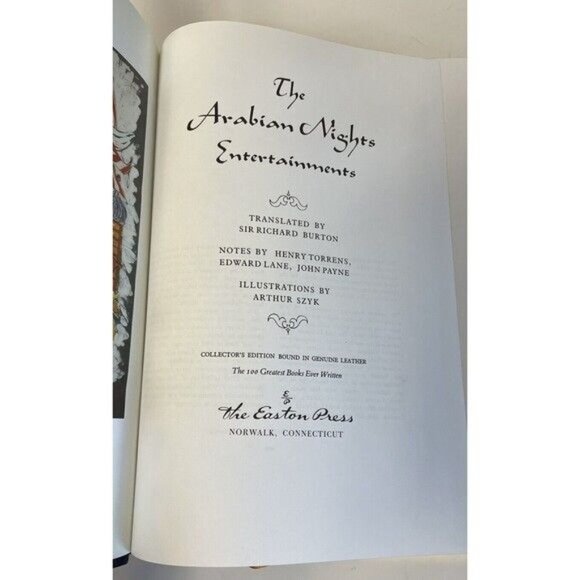 The
Arabian Nights
Entertainments
TRANSLATED BY
SIR RICHARD BURTON
NOTES BY HENRY TORRENS,
EDWARD LANE, JOHN PAYNE
ILLUSTRATIONS BY
ARTHUR SZYK
COLLECTOR'S EDITION BOUND IN GENUINE LEATHER
The 100 Greatest Books Ever Written
The Easton Press
NORWALK, CONNECTICUT